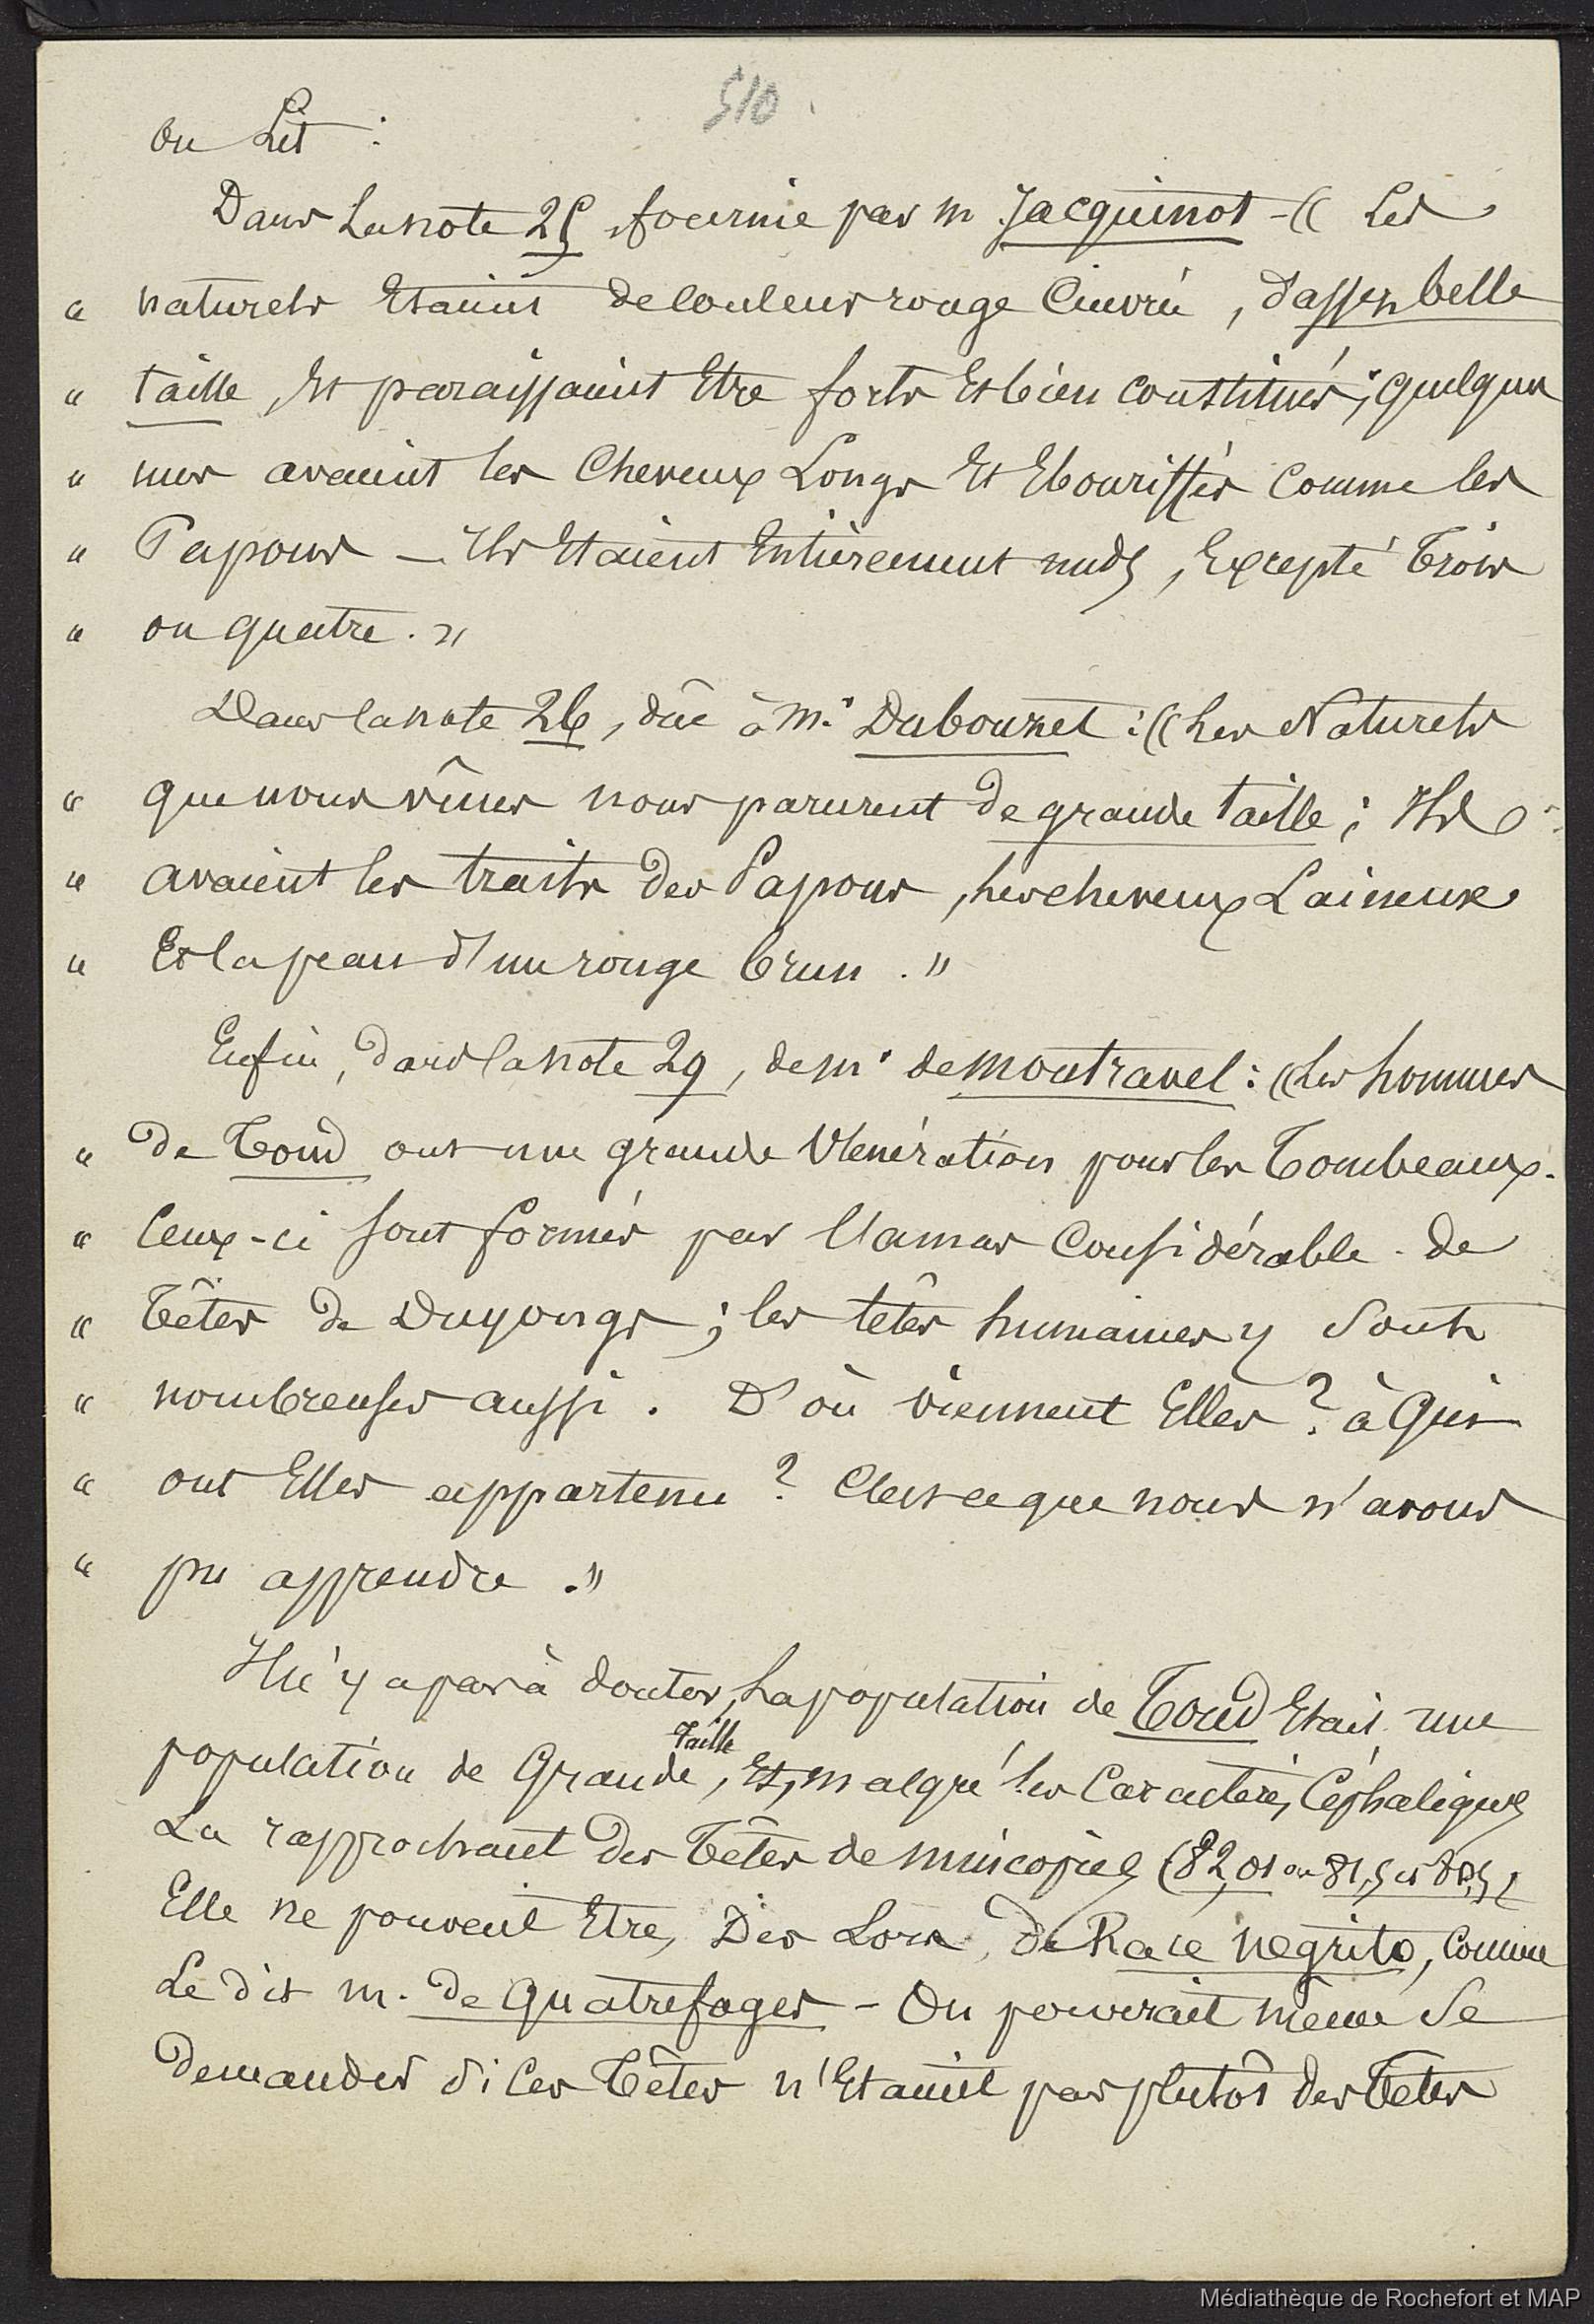 510.
On Lit :
Dans La note 25, fournie par M Jacquinot - (( Les
" naturels Etaient de couleur rouge Cuivré, d'assez belle
" taille, Et paraissaient Etre forts Et bien constitués ; quelques
" uns avaient les Cheveux Longs Et Ebouriffés comme les
" Papous — Ils Etaient Entièrement nuds, Excepté Trois
" ou quatre. "
Dans la note 26, dûe à Mr Dubouzet : (( Les Naturels
" que nous vîmes nous parurent de grande taille ; Ils
" avaient les traits des Papous, les cheveux Laineux
" Et la peau d'un rouge brun. "
Enfin, dans la note 29, de Mr de Montravel : (( Les hommes
" de Toud ont une grande Vénération pour les Tombeaux.
" Ceux-ci sont formés par l'amas Considérable de
" Têtes de Duyongs ; les têtes humaines y sont
" nombreuses aussi. D'où viennent Elles ? à Qui
" ont Elles appartenu ? C'est ce que nous n'avons
" pu apprendre. "
Il n'y a pas à douter, La population de Toud Etait une
population de Grande Taille, Et, malgré les Caractères Céphaliques
La rapprochant des Têtes de Mincopies (82,01 ou 81,5 et 80,5)
Elle ne pouvait Etre, Dès Lors, de Race Négrito, comme
Le dit M. de Quatrefages - On pouvrait même se
demander si Ces Têtes n'Etaient pas plutôt des Têtes
Médiathèque de Rochefort et MAP